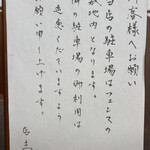 お客様へお願い
当店の駐車場はフェンスの
敷地内となります。
街の駐車場の御利用は
迷惑でだていますよう
お願い申し上げます。
店主